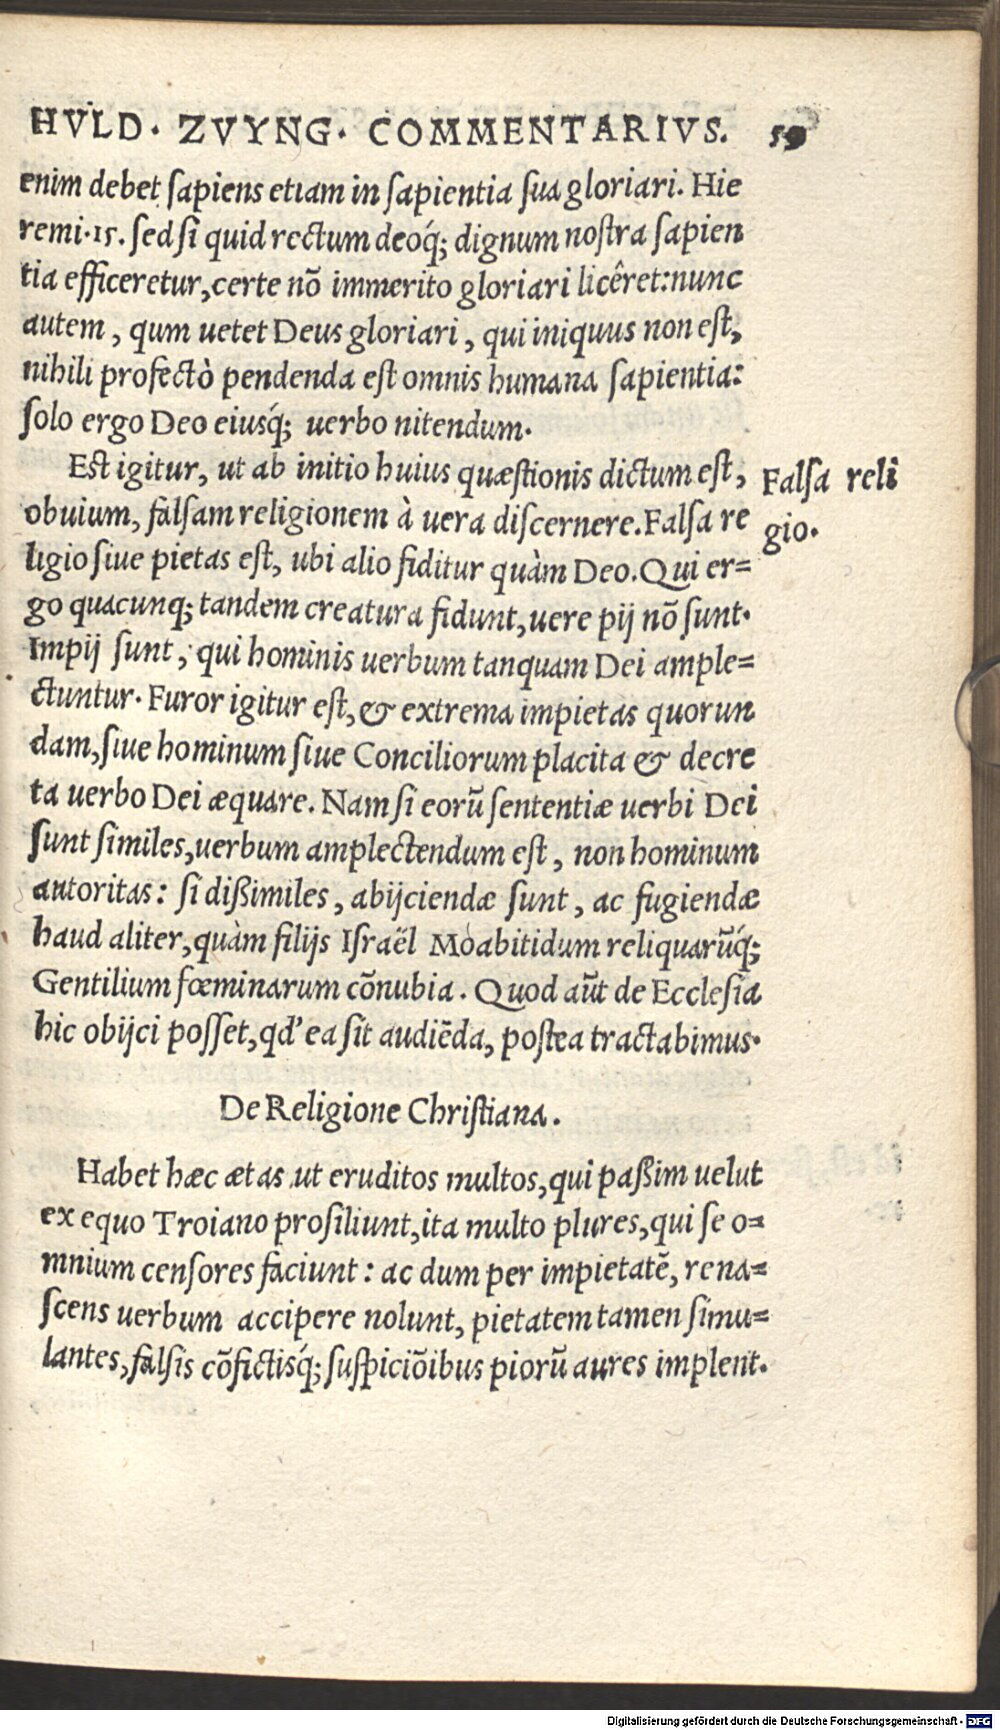 HVLD. ZVYNG. COMMENTARIVS. 59
enim debet ſapiens etiam in ſapientia ſua gloriari. Hie
remi.15. ſed ſi quid rectum deoq́; dignum noſtra ſapien
tia efficeretur, certe nō immerito gloriari licêret: nunc
autem, qum uetet Deus gloriari, qui iniquus non eſt,
nihili profectò pendenda eſt omnis humana ſapientia:
ſolo ergo Deo eiusq́; uerbo nitendum.
Est igitur, ut ab initio huius quæſtionis dictum eſt,
Falſa reli
obuium, falſam religionem à uera diſcernere. Falſa re
gio.
ligio ſiue pietas eſt, ubi alio fiditur quàm Deo. Qui er=
go quacunq; tandem creatura fidunt, uere pij nō ſunt.
Impij ſunt, qui hominis uerbum tanquam Dei ample=
ctuntur. Furor igitur eſt, & extrema impietas quorun
dam, ſiue hominum ſiue Conciliorum placita & decre
ta uerbo Dei æquare. Nam ſi eorū ſententiæ uerbi Dei
ſunt ſimiles, uerbum amplectendum eſt, non hominum
autoritas: ſi dißimiles, abijciendæ ſunt, ac fugiendæ
haud aliter, quàm filijs Iſraël Moabitidum reliquarūq́;
Gentilium fœminarum cōnubia. Quod aūt de Eccleſia
hic obijci poſſet, qd' ea ſit audiēda, poſtea tractabimus.
De Religione Chriſtiana.
Habet hæc ætas ut eruditos multos, qui paßim uelut
ex equo Troiano proſiliunt, ita multo plures, qui ſe o=
mnium cenſores faciunt: ac dum per impietatē, rena=
ſcens uerbum accipere nolunt, pietatem tamen ſimu=
lantes, falſis cōfictisq́; ſuſpiciōibus piorū aures implent.
Digitalisierung gefördert durch die Deutsche Forschungsgemeinschaft - DFG